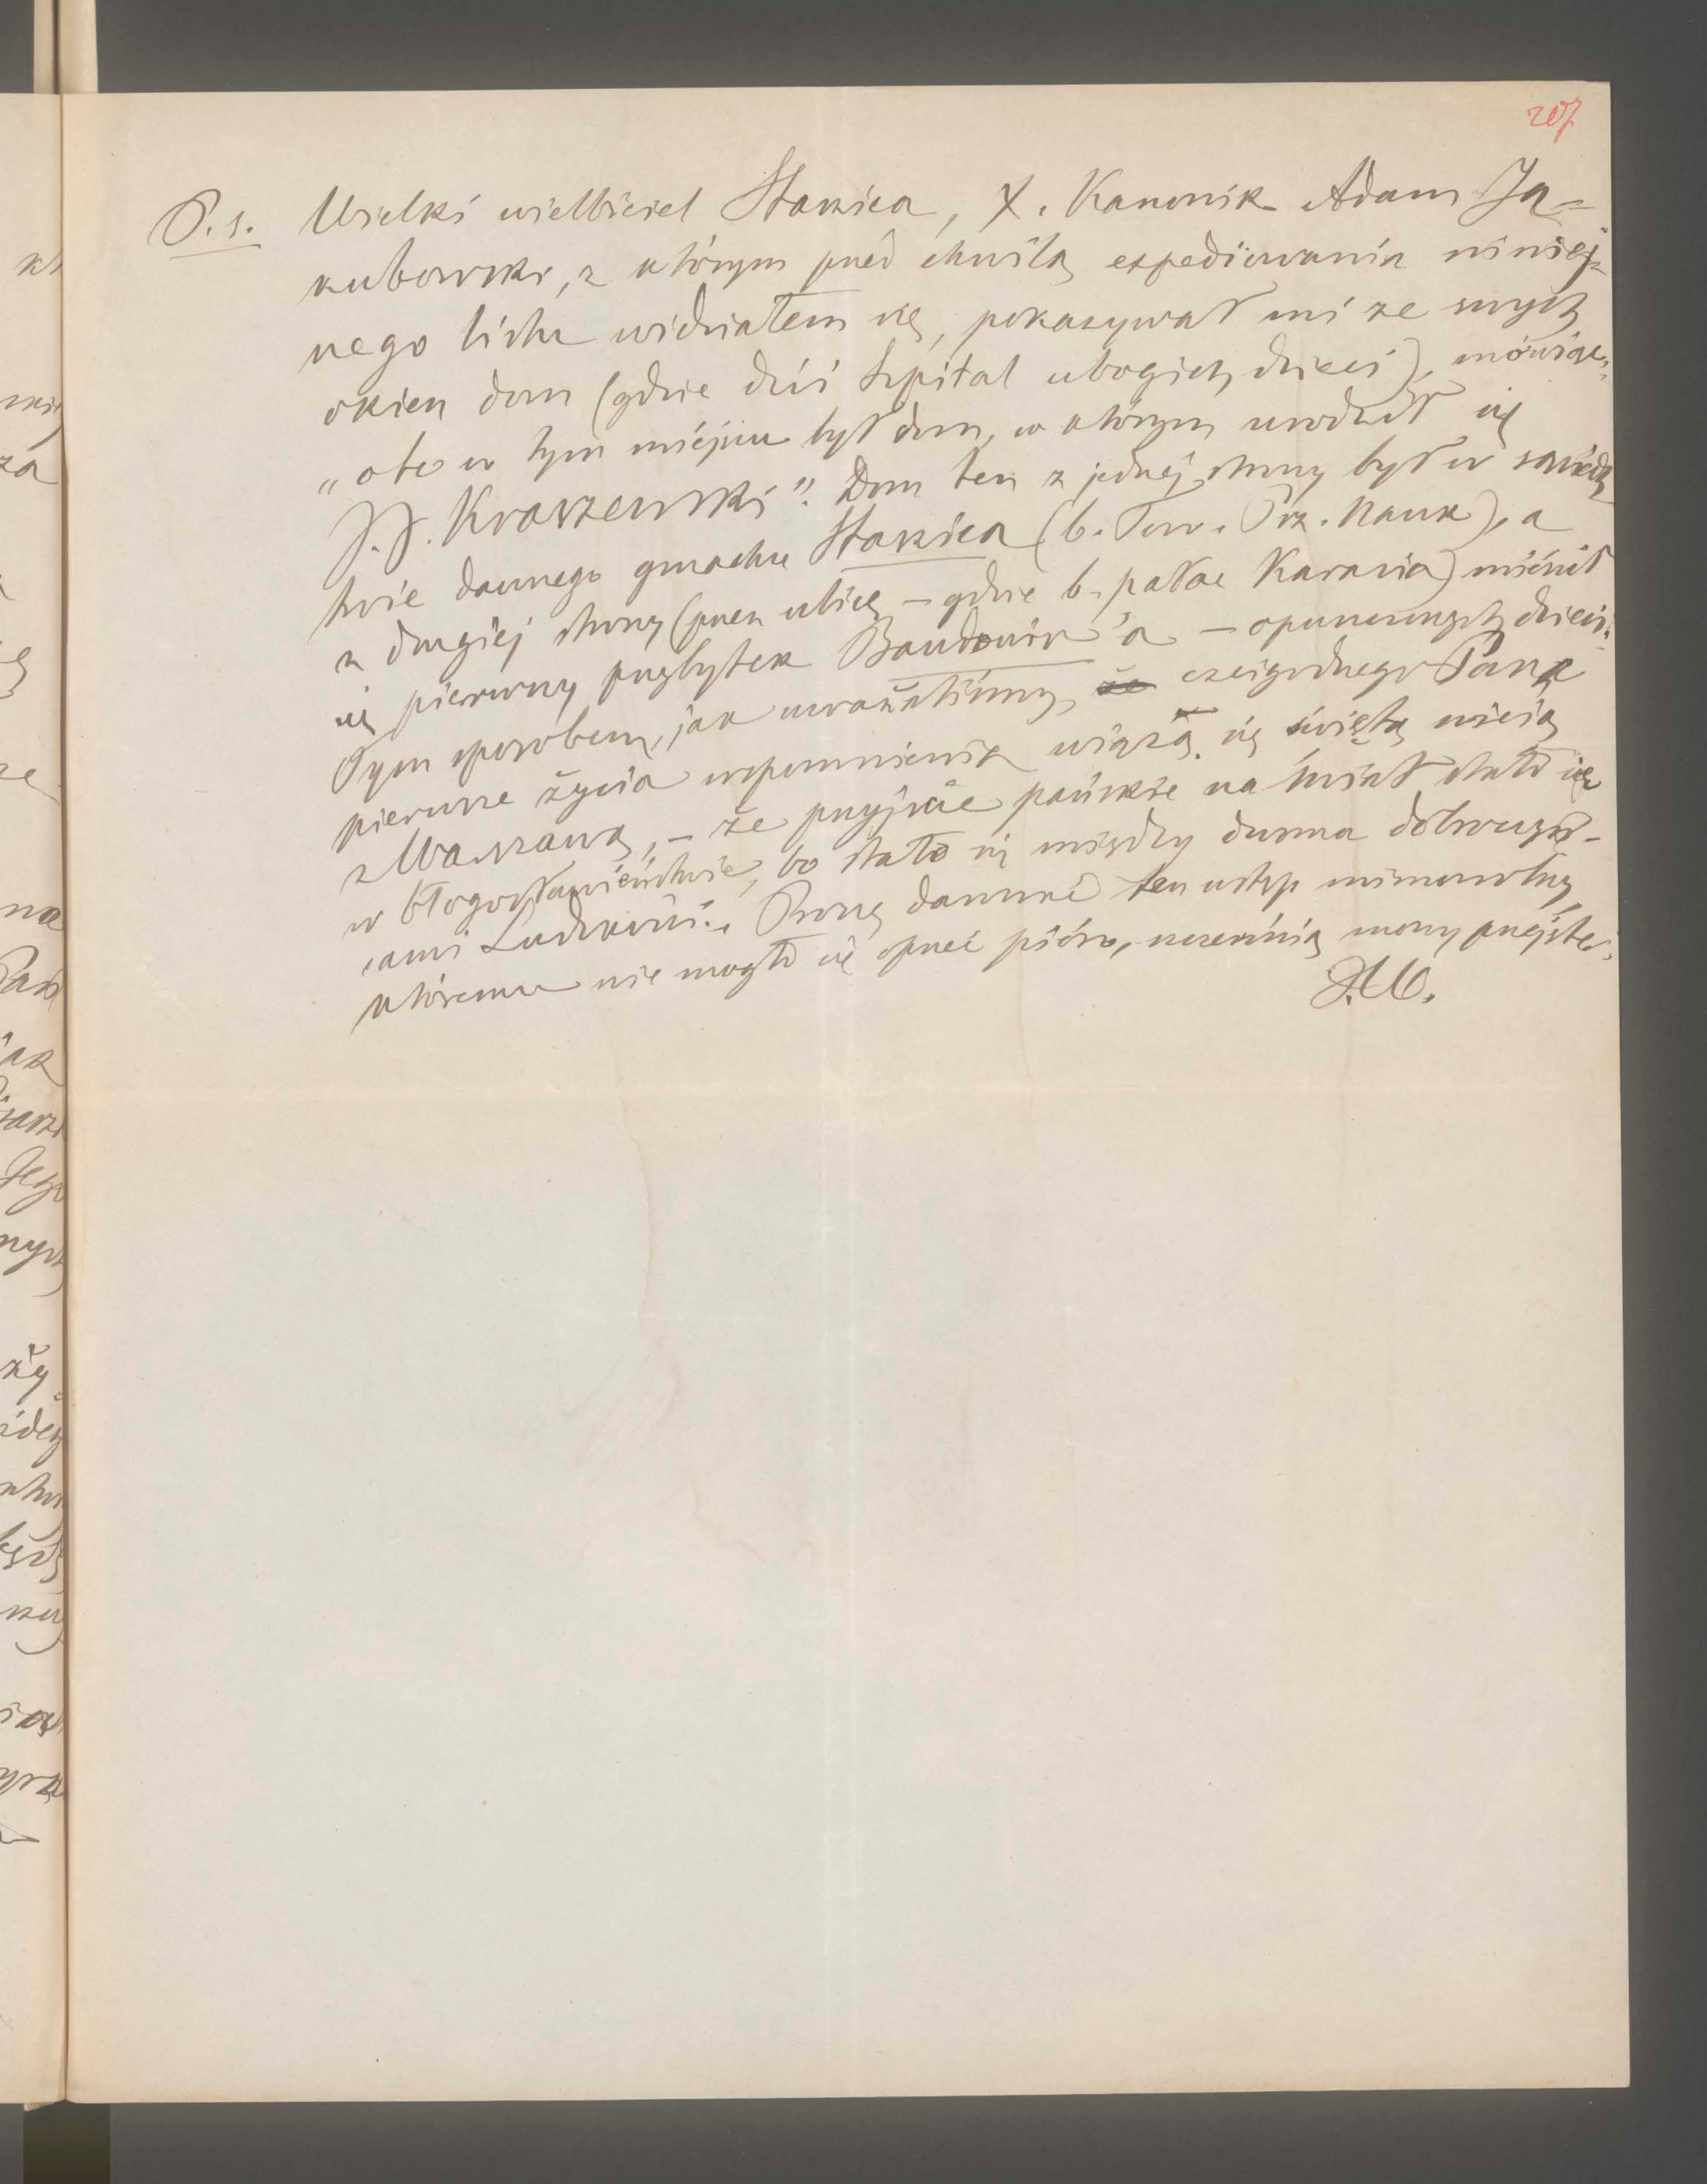 207
P. s. Wielki wielbiciel Staszica, X. Kanonik Adam Ja=
kubowski, z którym przed chwilą expedjowania niniej=
szego listu widziałem się, pokazywał mi ze swych
okien dom (gdzie dziś szpital ubogich dzieci), mówiąc:
„oto w tym miejscu był dom, w którym urodził się
J. J. Kraszewski”. Dom ten z jednej strony był w sąsiedz
twie dawnego gmachu Staszica (b. Tow. Prz. Nauk), a
z drugiej strony (przez ulicę – gdzie b. pałac Karasia) mieścił
się pierwszy przybytek Baudouin'a – opuszczonych dzieci.
Tym sposobem, jak uważaliśmy, że czcigodnego Pana
pierwsze życia wspomnienia wiążą się świętą wicią
z Warszawą, – że przyjście pańskie na świat stało się
w błogosławieństwie, bo stało się między dwoma dobroczyń-
cami Ludzkości. Proszę darować ten ustęp mimowolny,
któremu nie mogło się oprzeć pióro, szczerością mowy przejęte.